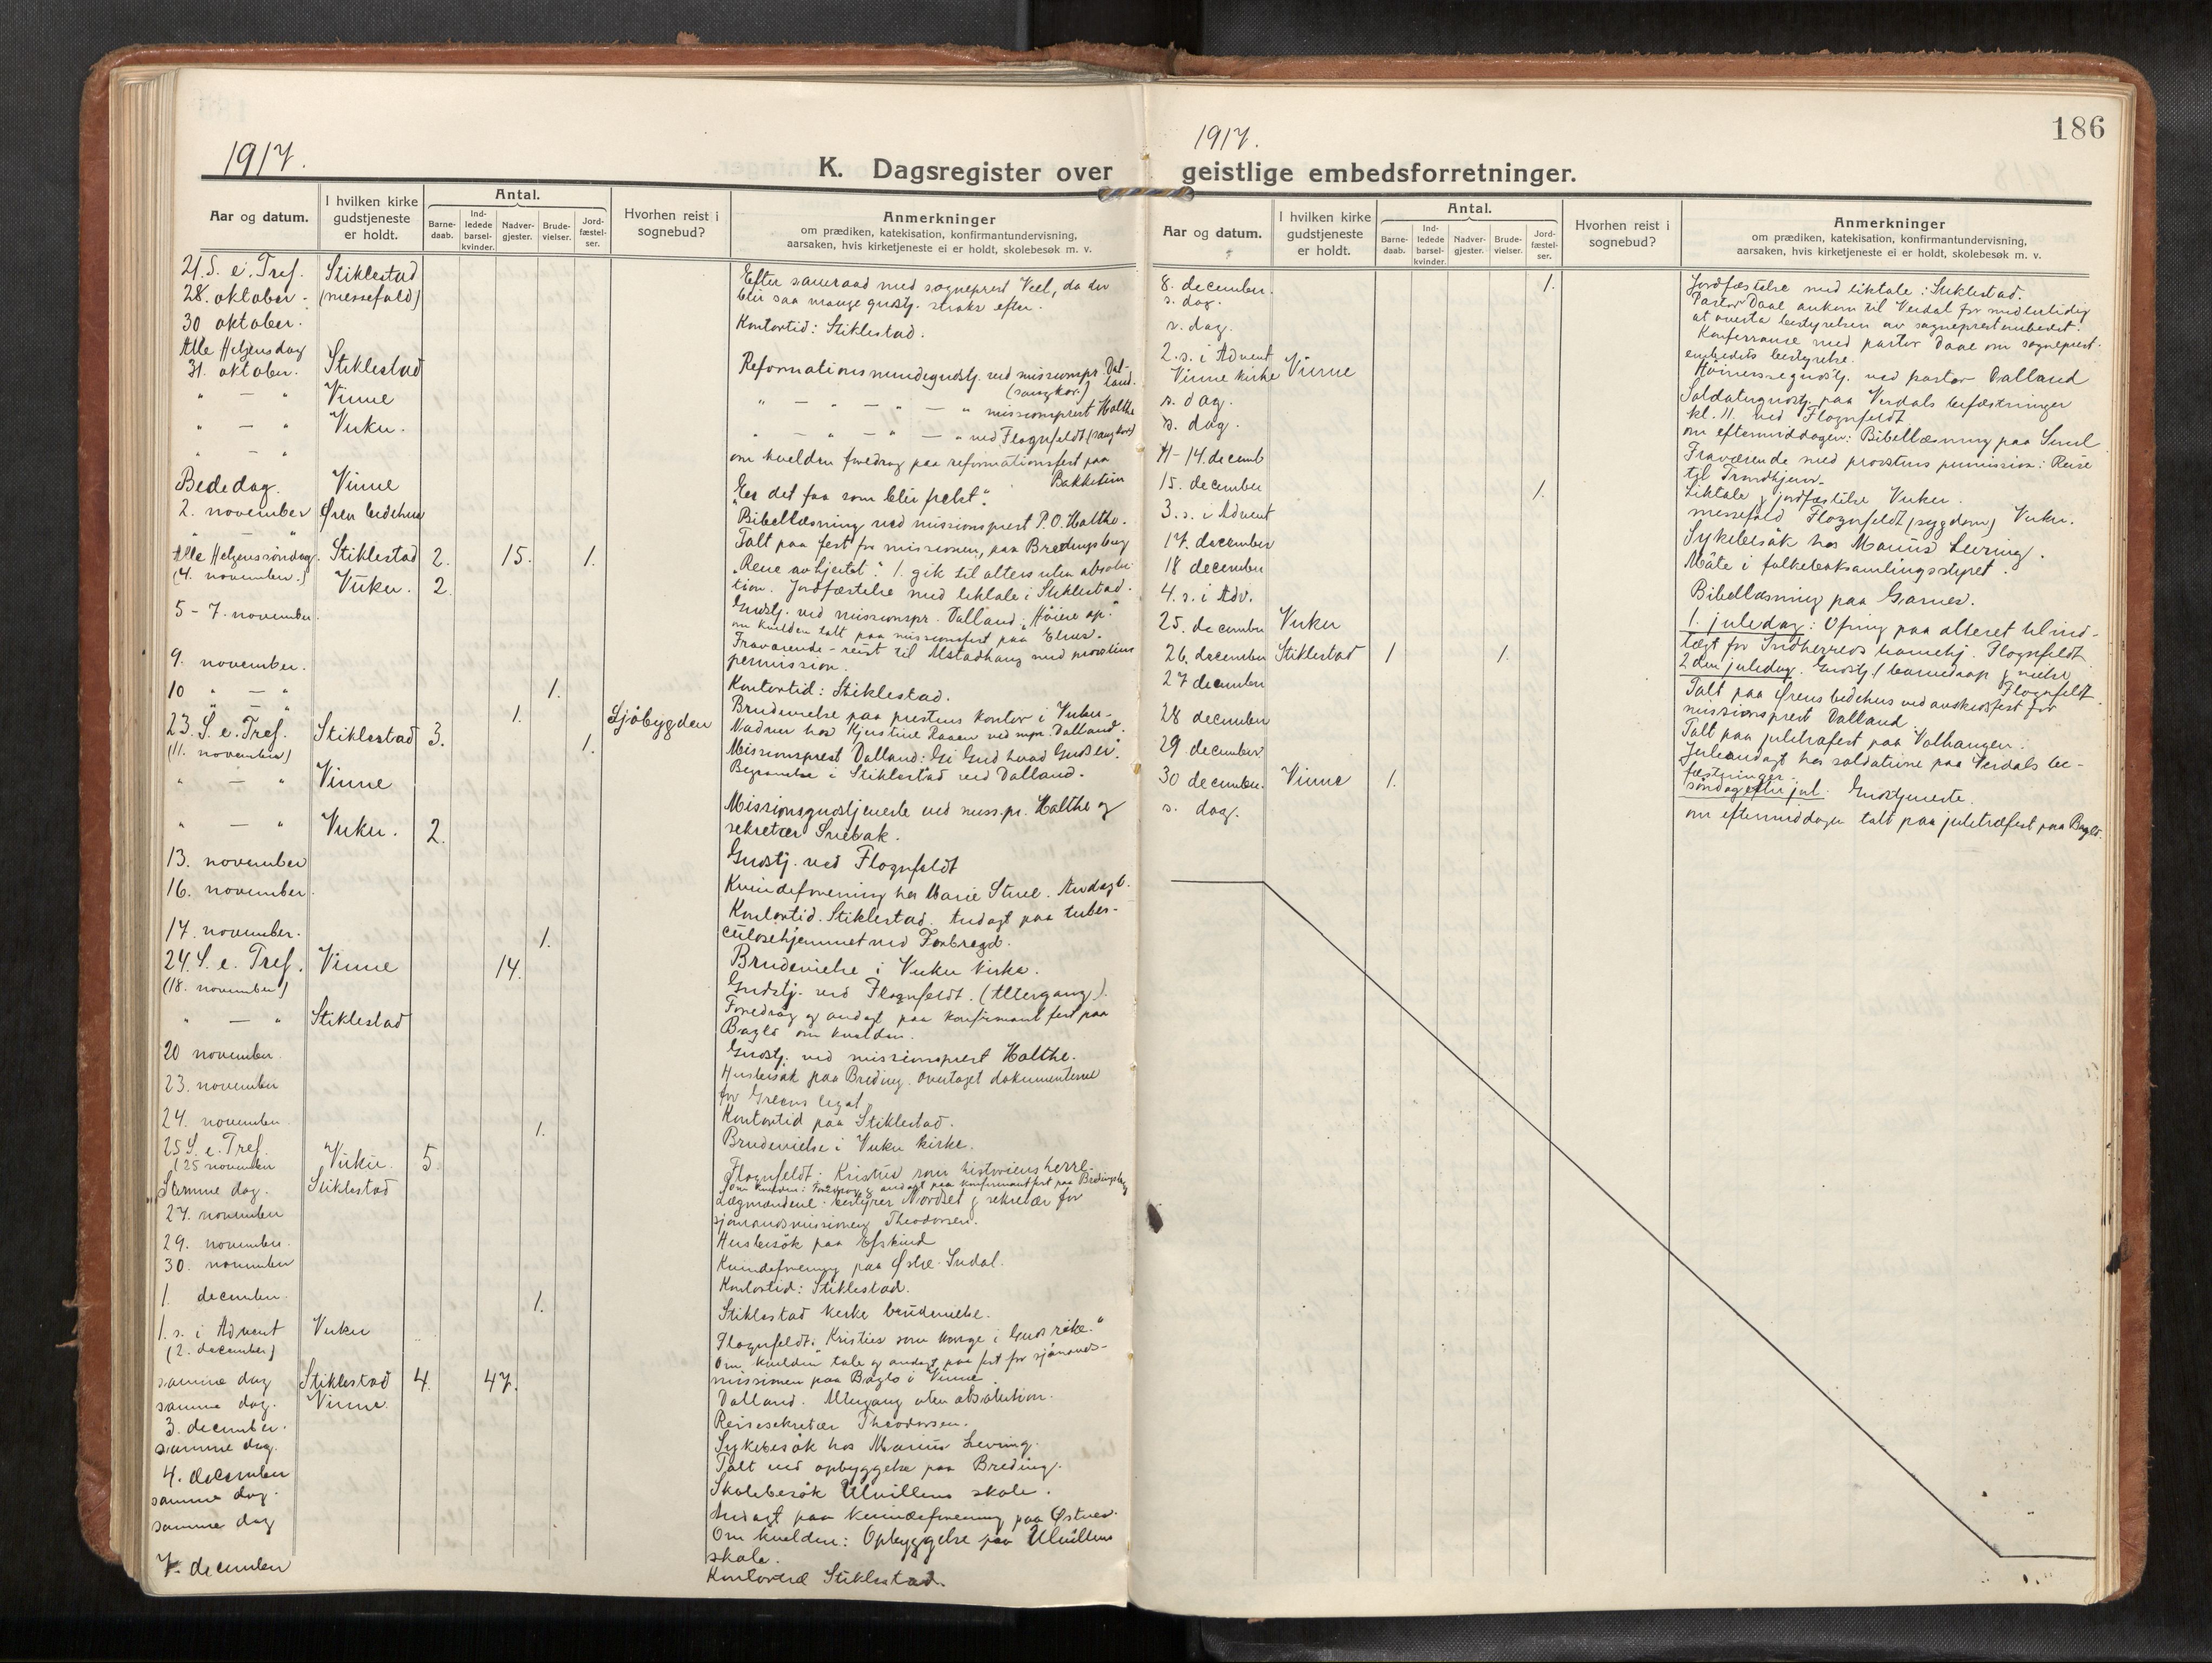 1917.
K. Dagsregister over
Aar og datum.
I hvilken kirke gudstjeneste er holdt.
Antal.
Barne-daab.
Ind-ledede barsel-kvinder.
Nadver-gjester.
Brude-vielser.
Jord-fæstel-ser.
Hvorhen reist i sognebud?
Anmerkninger
om prædiken, katekisation, konfirmantundervisning,
aarsaken, hvis kirketjeneste ei er holdt, skolebesøk m. v.
21. S. e. Tref. Stiklestad Efter samraad med sogneprest Veel, da der
28. oktober. (messefald) blir saa mange gudstj. straks efter.
30 oktober. Kontortid: Stiklestad.
Alle Helgensdag
31. oktober. Stiklestad Reformationsmindegudstj. ved missionspr. Dal-
(sangkor.) land.
" — " Vinne " — " — " — " missionsprest Halthe
" — " Vuku. " — " — " — " ved Flognfeldt (sangkor)
" — " om kvelden foredrag paa reformationsfest paa
Bakketun
Bededag. Vinne "Er det faa som blir frelst".
2. november Øren bedehus Bibellæsning ved missionsprest P. O. Halthe.
" " Talt paa fest for missionen, paa Bredingsberg
Alle Helgenssøndag. Stiklestad 2. 15. 1. "Rene av hjertet". 1. gik til alters uten absolu-
(4. november.) tion. Jordfæstelse med liktale i Stiklestad.
Vuku. 2. Gudstj. ved missionspr. Dalland. "Høiere op."
om kvelden talt paa missionsfest paa Elnes.
5 - 7. november. Fraværende - reist til Alstadhaug med provstens
permission.
9. november. Kontortid: Stiklestad.
10 " — " 1. Brudevielse paa prestens kontor i Vuku.
" — " 1. Sjöbygden Nadver hos Kjerstine Haaen ved mpr. Dalland.
23. S. e. Tref. Stiklestad 3. 1. Missionsprest Dalland: "Gi Gud hvad Guds er".
(11. november) Begravelse i Stiklestad ved Dalland.
" — " Vinne Missionsgudstjeneste ved miss.pr. Halthe og
sekretær Snebak.
" — " Vuku. 2. Gudstj. ved Flognfeldt
13. november Kvindeforening hos Marie Stuel. Andagt.
16. november. Kontortid. Stiklestad. Andagt paa tuber-
culosehjemmet ved Forbregd.
17. november. 1. Brudevielse i Vuku kirke.
24. S. e. Tref. Vinne 14. Gudstj. ved Flognfeldt. (Altergang).
(18. november) Foredrag og andagt paa konfirmantfest paa
Baglo om kvelden.
" — " Stiklestad Gudstj. ved missionsprest Halthe.
20 november. Husbesök paa Breding. Overtaget dokumenterne
for Greens legat.
23. november Kontortid paa Stiklestad.
24. november. 1. Brudevielse i Vuku kirke.
25 S. e. Tref.
(25 november Vuku. 5 Flognfeldt. Kristus som historiens herre.
Om kvelden: Foredrag og andagt paa konfirmantfest paa Bredingsberg
Samme dag. Stiklestad Lægmændene: bestyrer Nordset og sekretær for
sjömandsmissionen Theodorsen.
27. november Husbesök paa Efskind
29. november. Kvindeforening paa Østre Sudal.
30. november Kontortid: Stiklestad.
1. december. 1. Stiklestad kirke brudevielse.
1. s. i Advent Vuku Flognfeldt: Kristus som konge i Guds rike."
(2. december) Om kvelden tale og andagt paa fest for sjömands-
missionen paa Baglo i Vinne.
samme dag Stiklestad 4. 47. Dalland. Altergang uten absolution.
samme dag. Vinne. Reisesekretær Theodorsen.
3. december. Sykebesök hos Marius Levring.
samme dag. Talt ved opbyggelse paa Breding.
4. december Skolebesök Ulvillens skole.
samme dag. Andagt paa kvindeforening paa Østnes.
samme dag Om kvelden: Opbyggelse paa Ulvillens
skole.
7. december Kontortid Stiklestad.
1917.
186
geistlige embedsforretninger.
Aar og datum.
I hvilken kirke gudstjeneste er holdt.
Antal.
Barne-daab.
Ind-ledede barsel-kvinder.
Nadver-gjester.
Brude-vielser.
Jord-fæstel-ser.
Hvorhen reist i sognebud?
Anmerkninger
om prædiken, katekisation, konfirmantundervisning,
aarsaken, hvis kirketjeneste ei er holdt, skolebesøk m. v.
8. december. 1. Jordfæstelse med liktale: Stiklestad.
s. dag. Pastor Daae ankom til Verdal for midlertidig
at overta bestyrelsen av sogneprestembedet.
s. dag. Konferranse med pastor Daae om sogneprest-
embedets bestyrelse.
2. s. i Advent
Vinne kirke Vinne Höimessegudstj. ved pastor Dalland
s. dag. Soldatergudstj. paa Verdals befæstninger
kl. 11. ved Flognfeldt
s. dag. om eftermiddagen: Bibellæsning paa Sem
11 - 14. decemb Fraværende med provstens permission: Reise
til Trondhjem.
15. december 1. Liktale og jordfæstelse Vuku.
3. s. i Advent messefald Flognfeldt (sygdom) Vuku.
17. december Sykebesök hos Marius Levring.
18 december Möte i folkeboksamlingsstyret.
4. s. i Adv. Bibellæsning paa Garnes.
25. december Vuku 1. juledag: Ofring paa alteret til ind-
tægt for Indherreds barnehj. Flognfeldt.
26. december Stiklestad 1 1. 2den juledag. Gudstj. 1 barnedaap og vielse
Flognfeldt
27 december Talt paa Ørens bedehus ved avskedsfest for
missionsprest Dalland.
28 december Talt paa juletræfest paa Valhaugen.
29 december Juleandagt hos soldaterne paa Verdals be-
fæstninger.
30 december. Vinne 1. söndag efter jul. Gudstjeneste.
s. dag. om eftermiddagen talt paa juletræfest paa Baglo.